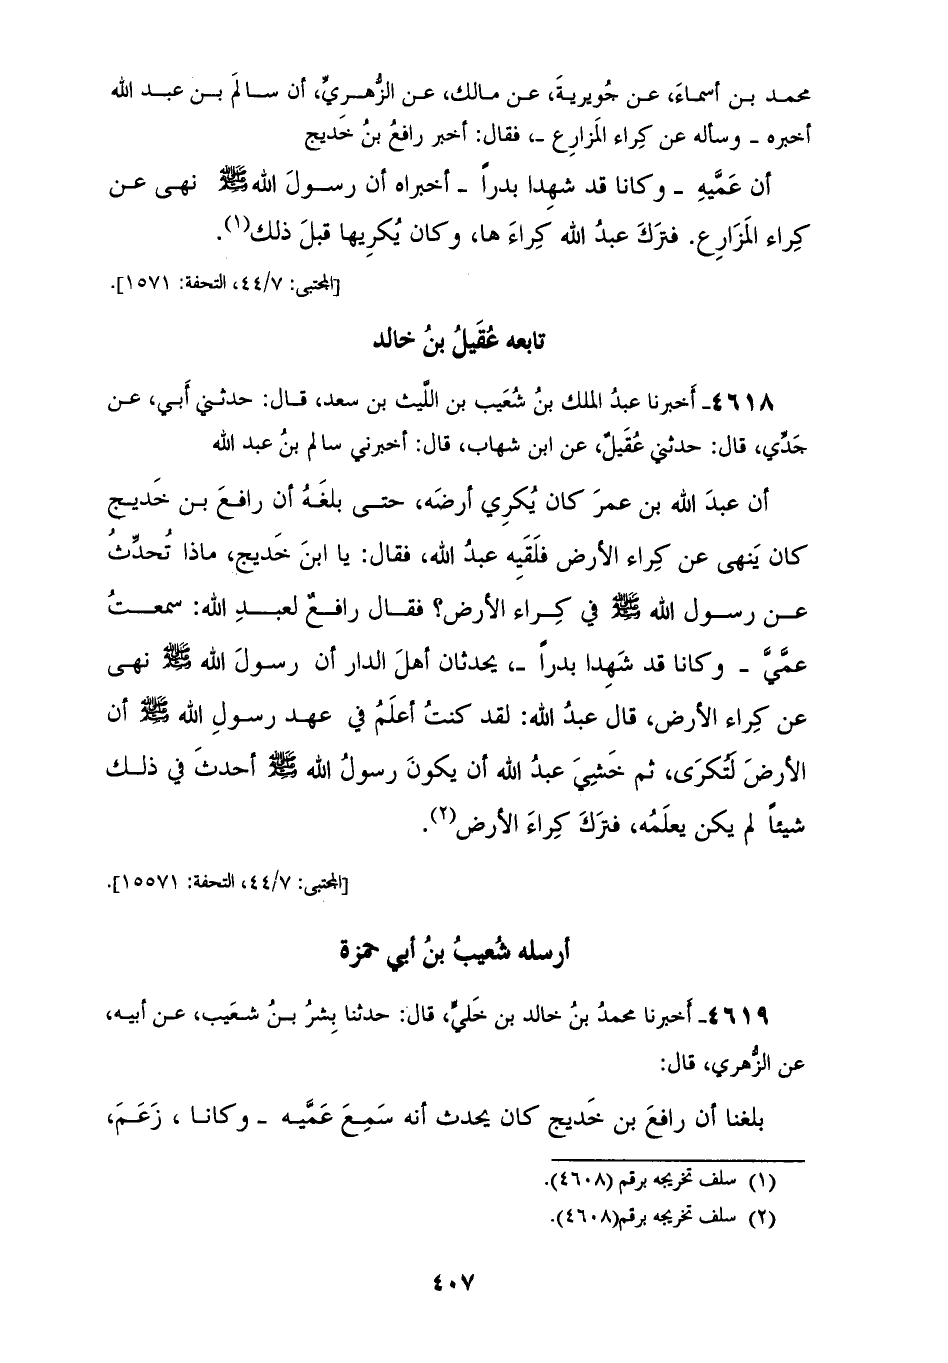 محمد بن أسماءَ، عن جُويريةَ، عن مالك، عن الزُّهريِّ، أن سالمَ بن عبد الله
أخبره - وسأله عن كِراء المَزارِع -، فقال: أخبر رافعُ بنُ خَديج
أن عَمَّيهِ - وكانا قد شهِدا بدراً - أخبراه أن رسولَ الله ﷺ نهى عن
كِراء المَزَارِع. فتَركَ عبدُ الله كِراءَ ها، وكان يُكرِيها قبلَ ذلك(١).
[المجتبى: ٤٤/٧، التحفة: ١٥٧١].
تابعه عُقَيلُ بنُ خالد
٤٦١٨- أَخبرنا عبدُ الملك بنُ شُعَيب بن اللَّيث بن سعد، قال: حدثني أَبي، عن
جَدِّي، قال: حدثني عُقَيلٌ، عن ابن شهاب، قال: أخبرني سالم بنُ عبد الله
أن عبدَ الله بن عمرَ كان يُكري أرضَه، حتى بلغَهُ أن رافعَ بن خَديج
كان يَنهى عن كِراء الأرض فلَقَيِه عبدُ الله، فقال: يا ابنَ خَديج، ماذا تُحدِّثُ
عن رسول الله ﷺ في كِراء الأرض؟ فقال رافعٌ لعبدِ الله: سمعتُ
عمَّيَّ - وكانا قد شَهِدا بدراً -، يحدثان أهلَ الدار أن رسولَ الله ﷺ نهى
عن كِراء الأرض، قال عبدُ الله: لقد كنتُ أعلَمُ في عهد رسولِ الله ﷺ أن
الأرضَ لَتُكرَى، ثم خَشِيَ عبدُ الله أن يكونَ رسولُ الله ﷺ أحدثَ في ذلك
شيئاً لم يكن يعلَمُه، فتَركَ كِراءَ الأرض(٢).
[المجتبى: ٤٤/٧، التحفة: ١٥٥٧١].
أرسله شُعيبُ بنُ أبي حمزة
٤٦١٩- أَخبرنا محمدُ بنُ خالد بن خَليٍّ، قال: حدثنا بِشرُ بنُ شعَيب، عن أبيه،
عن الزُّهري، قال:
بلغنا أن رافعَ بن خَديج كان يحدث أنه سَمِعَ عَمَّيه - وكانا ، زَعَمَ،
(١) سلف تخريجه برقم (٤٦٠٨).
(٢) سلف تخريجه برقم(٤٦٠٨).
٤٠٧